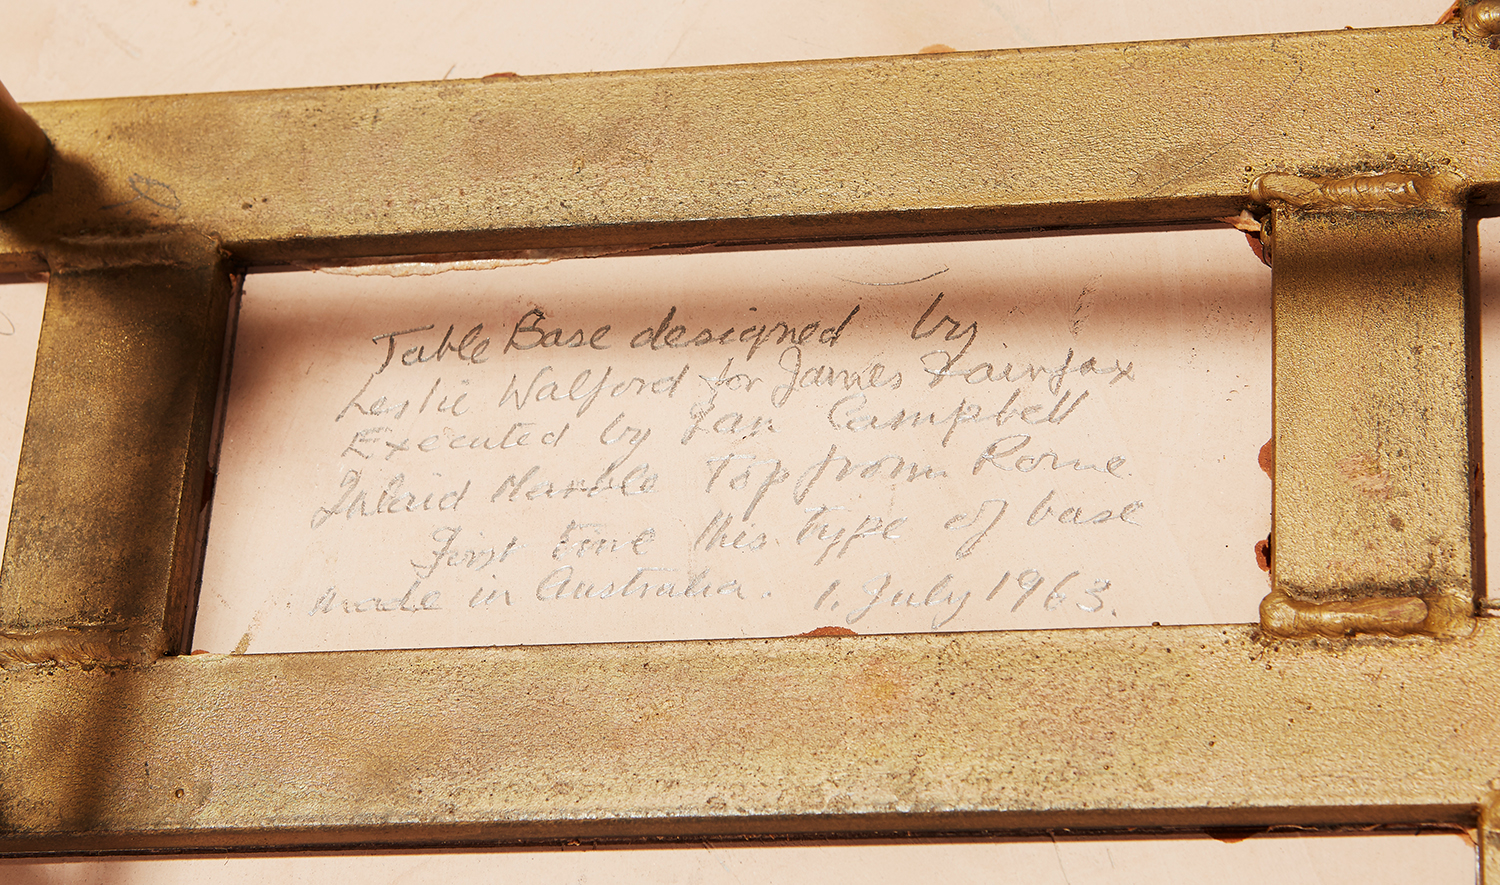 Table Base designed by
Leslie Walford for James Fairfax
Executed by Ian Campbell
Inlaid Marble Top from Rome
First time this type of base
made in Australia. 1. July 1963.